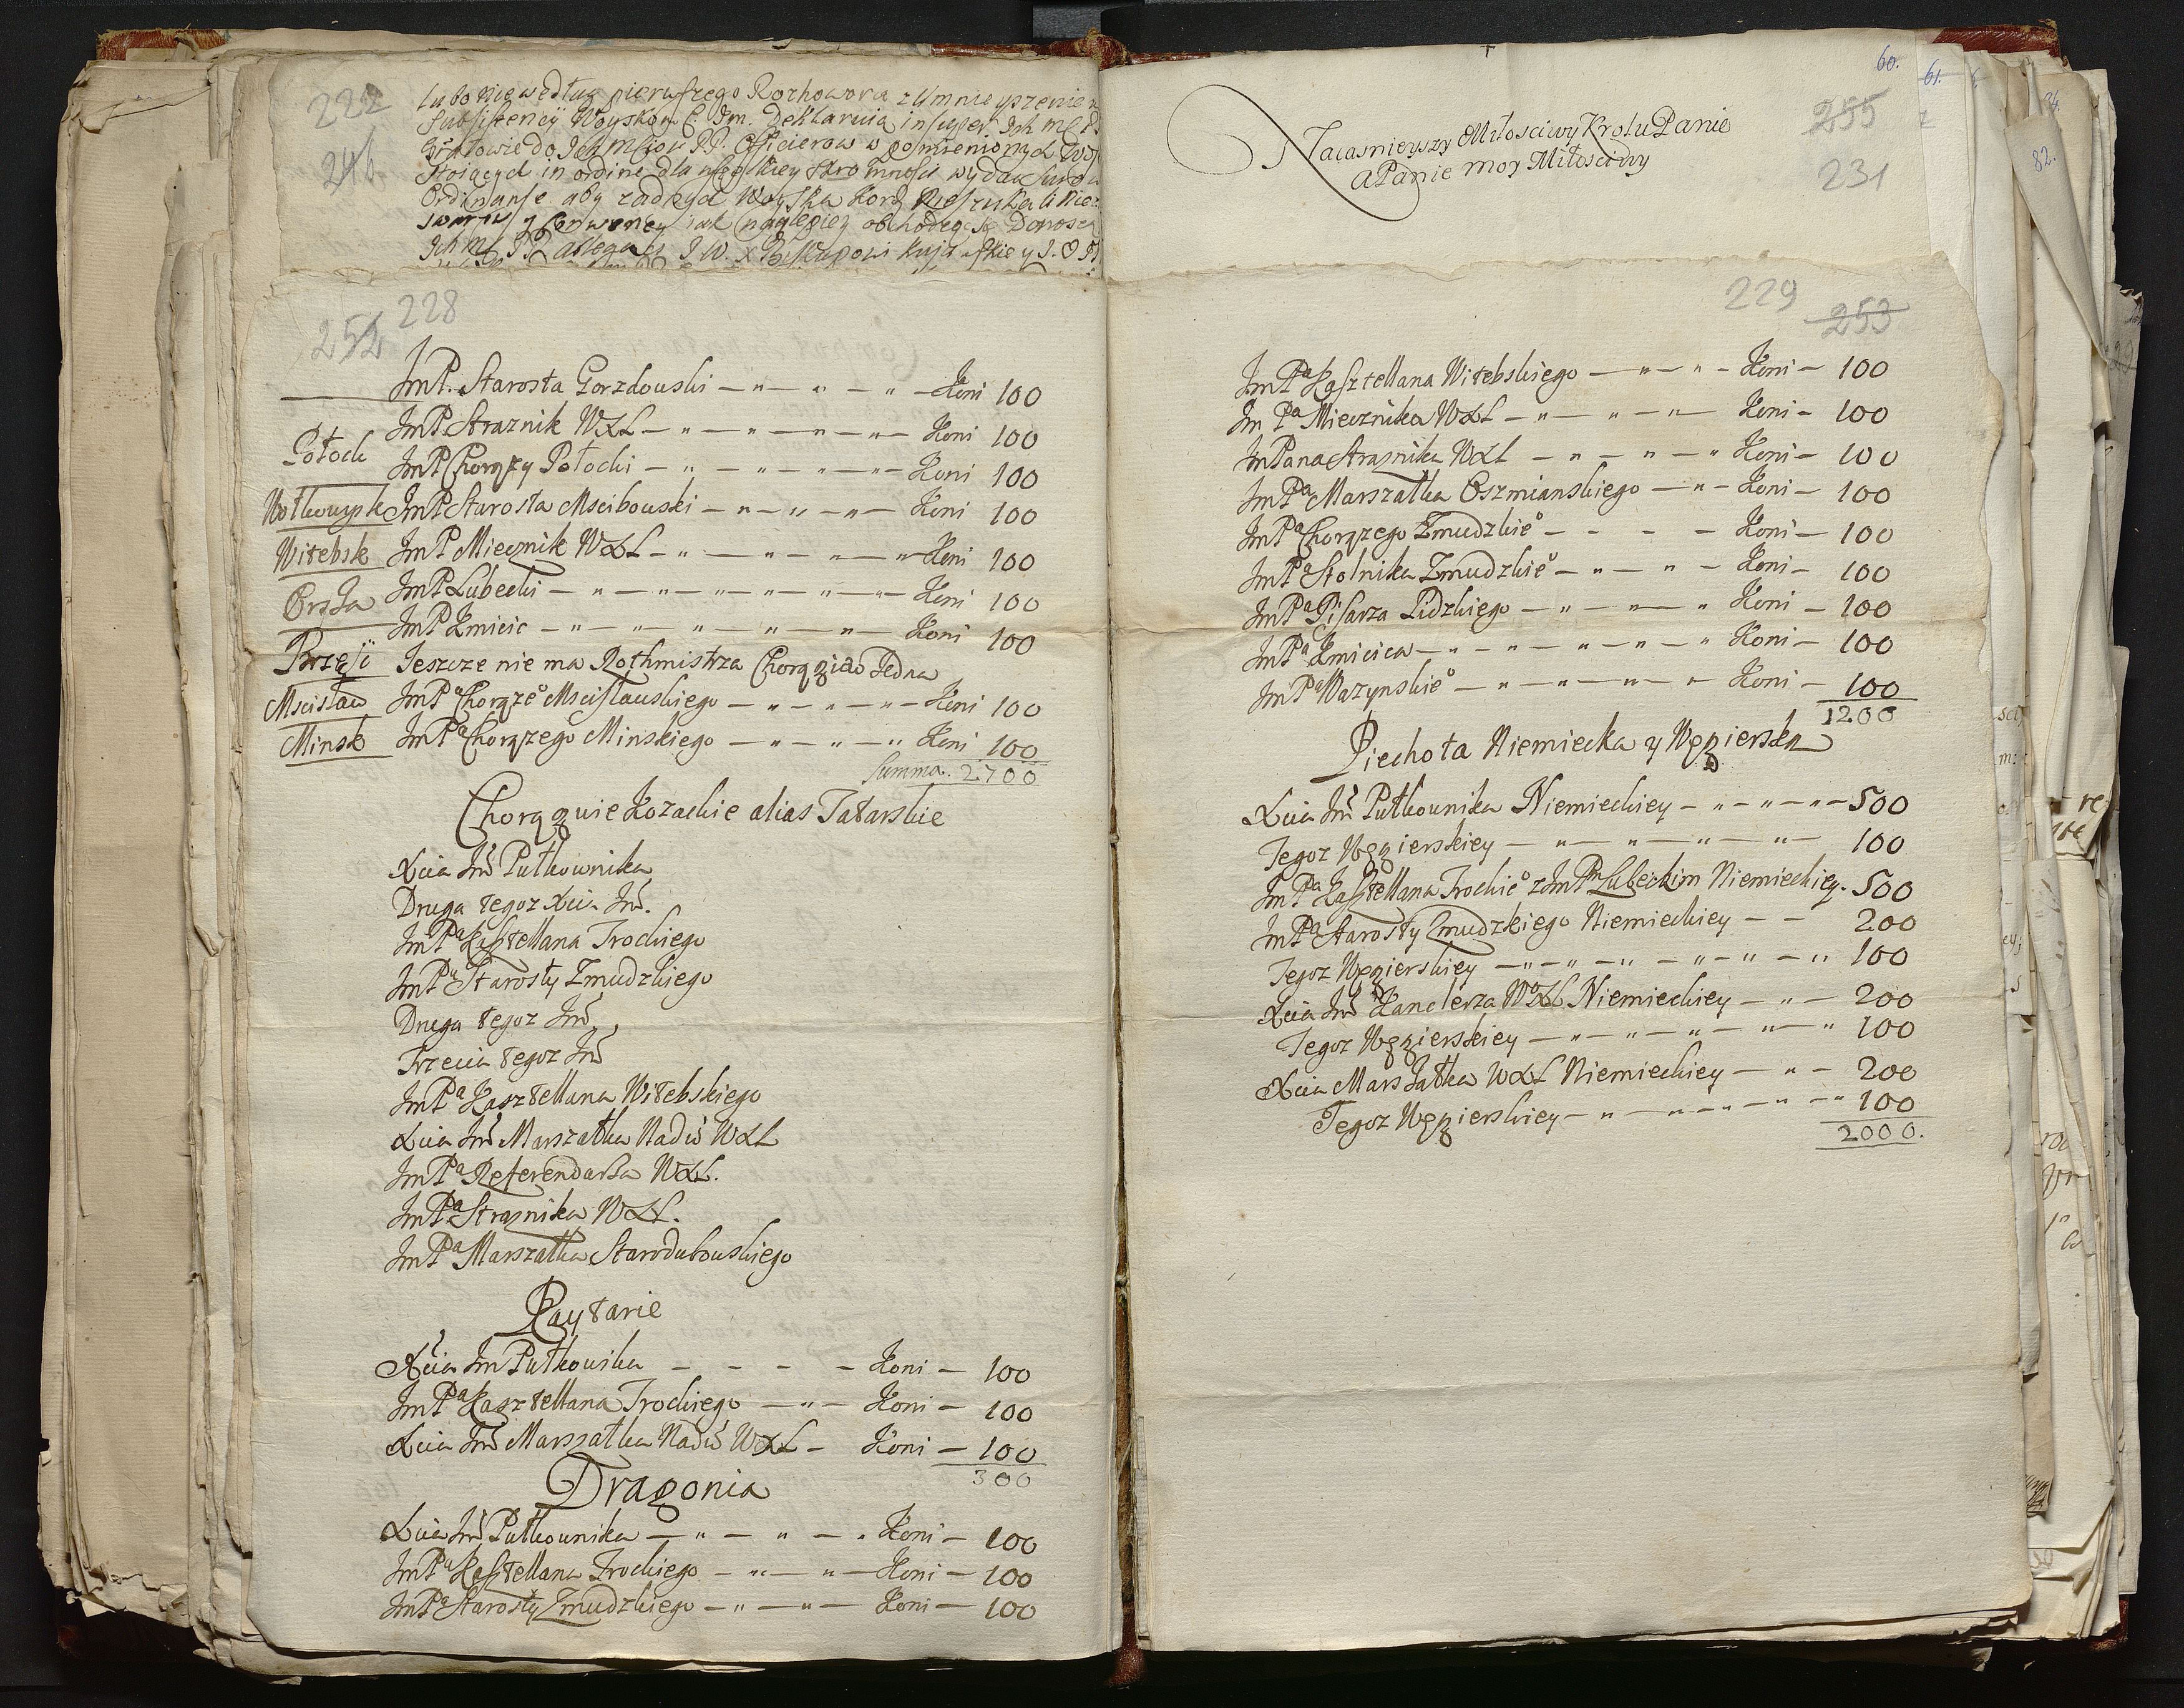 222
246
lubo nie według pierwszego Rozhowora z Umnieyszenie
Subsistencij Woyskom C: Im. Deklaruią insuper Ich mć P
do Ich Mćiow PP. Officierow w pomienionych
Stoiących in ordine dla wszelkiey skromnosci wydać surow
Ordinanse aby żadnych Woyska Kor
iak naylepiey obchodzą się Donoszą
Ich Mć PP ablegaci J W. X Biskupowi Kujawskie y J. O
252 228
JmP. Starosta Gorzdowski — " — " — " — Koni 100
Połock
JmP. Straznik WXL — " — " — " — " — Koni 100
JmP Chorązy Połocki — " — " — " — " — Koni 100
Wołkowysk JmP Starosta Mscibowski — " — " — " — Koni 100
Witebsk JmP Miecznik WXL — " — " — " — " Koni 100
Orsza JmP Lubecki — " — " — " — " — " — Koni 100
JmP Kmicic — " — " — " — " — " — Koni 100
Brześć Jeszcze nie ma Rothmistrza Chorągiew Jedna
Mscisław JmPa Chorąże° Mscisławskiego — " — " — " — Koni 100
Minsk JmPa Chorązego Minskiego — " — " — " Koni 100
Summa. 2700
Chorągwie Kozackie alias Tatarskie
Xcia Jmć Pułkownika
Druga tegoz Xcia Jmć.
JmPa Kasztellana Trockiego
JmPa Starosty Zmudzkiego
Druga tegoz Jmć
Trzecia tegoz Jmć
JmPa Kasztellana Witebskiego
Xcia Jmć Marszałka Nadw WXL
JmPa Referendarza WXL.
JmPa Straznika WXL.
JmPa Marszałka Starodubowskiego
Raytarie
Xcia Jm Pułkowika — — — — Koni — 100
JmPa Kasztellana Trockiego — " — Koni — 100
Xcia Jmć Marszałka Nadw WXL — Koni — 100
300
Dragonia
Xcia Jmć Pułkownika — " — " — . Koni — 100
JmPa Kasztellana Trockiego — " — " — Koni — 100
JmPa Starosty Zmudzkiego — " — " — Koni — 100
60.
61.
82.
255
231
Naiasnieyszy Miłosciwy Krolu Panie
a Panie moy Miłosciwy
229 253
JmPa Kasztellana Witebskiego — " — " — Koni — 100
Jm Pa Miecznika WXL — " — " — " — Koni — 100
JmPana Straznika WXL — " — " — " Koni — 100
JmPa Marszałka Oszmianskiego — " — Koni — 100
JmPa Chorązego Zmudzkie° — — — — Koni — 100
JmPa Stolnika Zmudzkie° — " — " — Koni — 100
JmPa Pisarza Lidzkiego — " — " — " Koni — 100
JmPa Kmicica — " — " — " — " — " Koni — 100
JmPa Wazynskie° — " — " — " — Koni — 100
1200
Piechota Niemiecka y Węgierska
Xcia Jmć Pułkownika Niemieckiey — " — " — " — 500
Tegoz Węgierskiey — " — " — " — " — 100
JmPa Kasztellana Trockie° z JmPm Lubeckim Niemieckiey. 500
JmPa Starosty Zmudzkiego Niemieckiey — — 200
Tegoz Węgierskiey — " — " — " — " — " — " 100
Xcia Jmć Kanclerza WXL Niemieckiey — " — 200
Tegoz Węgierskiey — " — " — " — " — " 100
Xcia Marszałka WXL Niemieckiey — " — 200
Tegoz Węgierskiey — " — " — " — " 100
2000.